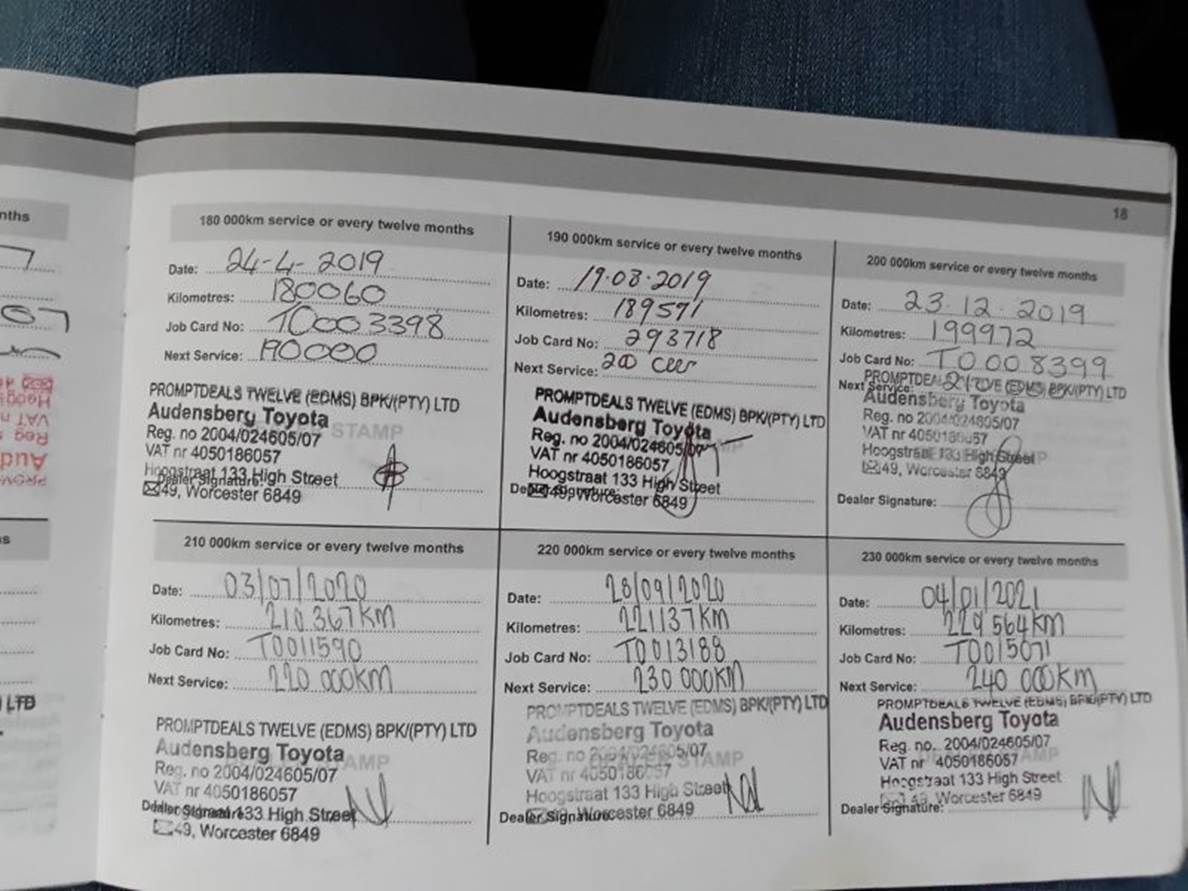 18
nths
180 000km service or every twelve months
Date: 24-4-2019
Kilometres: 180060
Job Card No: T0003398
Next Service: 190000
PROMPTDEALS TWELVE (EDMS) BPK/(PTY) LTD
Audensberg Toyota
Reg. no 2004/024605/07
STAMP
VAT nr 4050186057
Hoogstraat 133 High Street
Dealer Signature:
49, Worcester 6849
190 000km service or every twelve months
Date: 19.08.2019
Kilometres: 189571
Job Card No: 293718
Next Service: 200
PROMPTDEALS TWELVE (EDMS) BPK/(PTY) LTD
Audensberg Toyota
Reg. no 2004/024605/07
VAT nr 4050186057
Hoogstraat 133 High Street
Dealer Signature:
49, Worcester 6849
200 000km service or every twelve months
Date: 23.12.2019
Kilometres: 199972
Job Card No: T0008399
Next Service:
PROMPTDEALS TWELVE (EDMS) BPK/(PTY) LTD
Audensberg Toyota
Reg. no 2004/024605/07
VAT nr 4050186057
Hoogstraat 133 High Street
49, Worcester 6849
Dealer Signature:
210 000km service or every twelve months
Date: 03/07/2020
Kilometres: 210 367KM
Job Card No: T0011590
Next Service: 220 000KM
PROMPTDEALS TWELVE (EDMS) BPK/(PTY) LTD
Audensberg Toyota
Reg. no 2004/024605/07
STAMP
VAT nr 4050186057
Hoogstraat 133 High Street
Dealer Signature:
49, Worcester 6849
220 000km service or every twelve months
Date: 28/09/2020
Kilometres: 221137KM
Job Card No: T0013188
Next Service: 230 000KM
PROMPTDEALS TWELVE (EDMS) BPK/(PTY) LTD
Audensberg Toyota
Reg. no 2004/024605/07
STAMP
VAT nr 4050186057
Hoogstraat 133 High Street
Dealer Signature:
49, Worcester 6849
230 000km service or every twelve months
Date: 04/01/2021
Kilometres: 229 564KM
Job Card No: T0015071
Next Service: 240 000KM
PROMPTDEALS TWELVE (EDMS) BPK/(PTY) LTD
Audensberg Toyota
Reg. no. 2004/024605/07
VAT nr 4050186057
Hoogstraat 133 High Street
49, Worcester 6849
Dealer Signature:
LTD